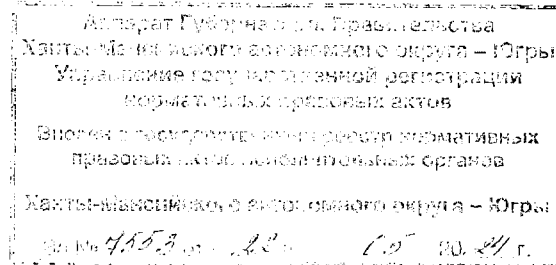 Аппарат Губернатора, Правительства
Ханты-Мансийского автономного округа – Югры
Управление государственной регистрации
нормативных правовых актов
Внесен в государственный реестр нормативных
правовых актов исполнительных органов
Ханты-Мансийского автономного округа – Югры
за № 7553 от 28 05 20 24 г.